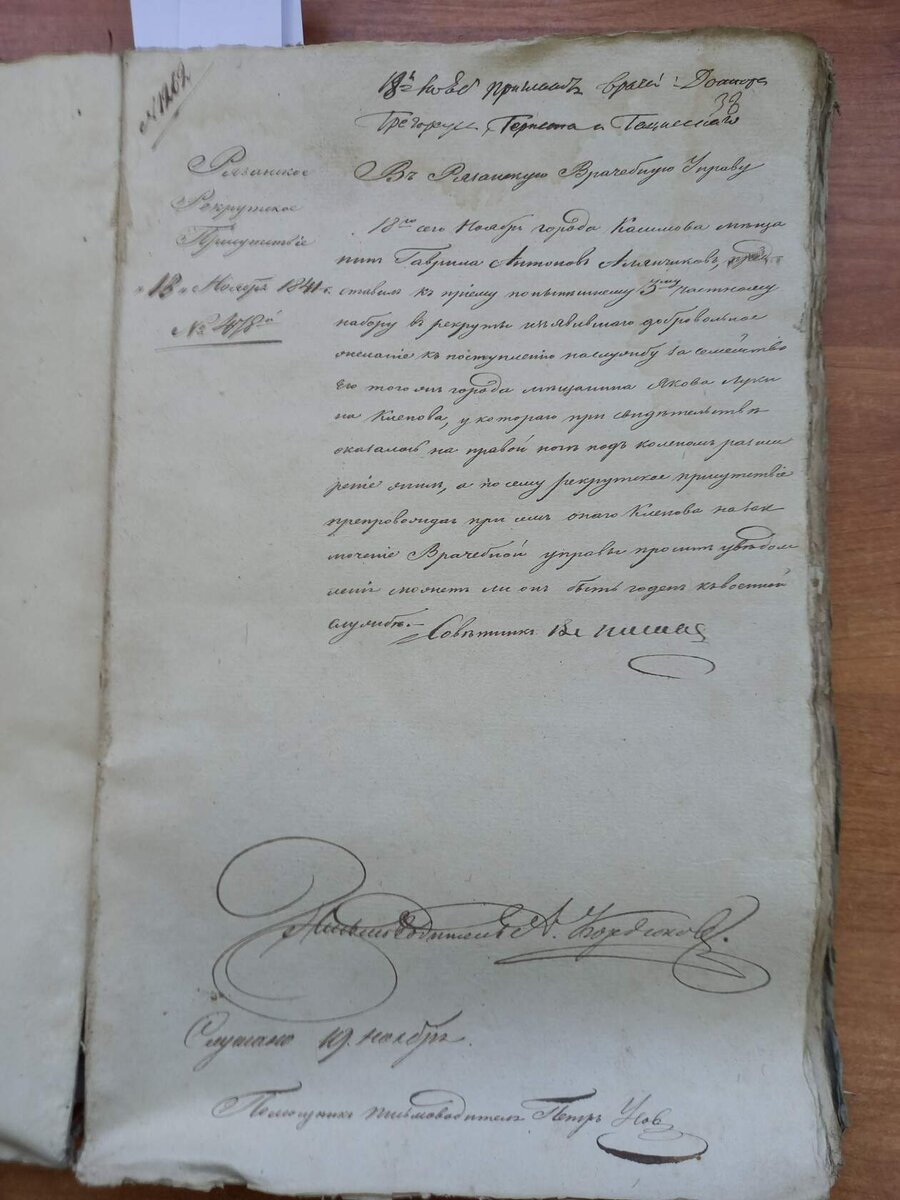 № 1262
18 Нояб пригласить врачей: Доктора
38
Въ Рязанскую Врачебную Управу
Рязанское
Рекрутское
Присутствіе
"18" Ноября 1841 г.
№ 478й
18го сего Ноября города Касимова мѣща
нинъ Гаврила Антоновъ Алянчиковъ, пред
ставилъ къ пріему по нынѣшнему 5му частному
набору в рекруты изъявившаго добровольное
желаніе къ поступленію на службу за семѣйство
его того жъ города мѣщанина Якова Луки
на Клепова, у котораго при свидѣтельствѣ
оказалось на правой ногѣ подъ коленомъ разши
реніе жилъ, а по сему рекрутское присутствіе
препровождая при семъ онаго Клепова на зак
люченіе Врачебной управы проситъ увѣдом
леніи можетъ ли онъ быть годенъ къ военной
службѣ.— Совѣтникъ
Письмоводитель А.
Слушано 19 ноября.
Помощникъ письмоводителя Петръ